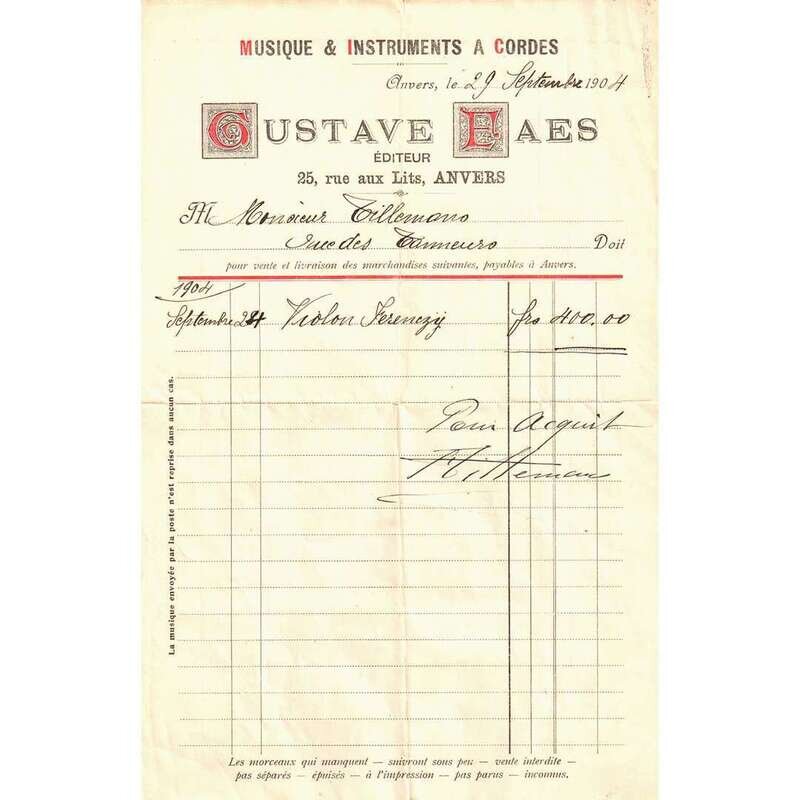 MUSIQUE & INSTRUMENTS A CORDES
Anvers, le 29 Septembre 1904
GUSTAVE FAES
ÉDITEUR
25, rue aux Lits, ANVERS
M Monsieur Tillemans
rue des Tanneurs Doit
pour vente et livraison des marchandises suivantes, payables à Anvers.
1904
Septembre 24 Violon Ferenczy frs 400.00
Pour Acquit
La musique envoyée par la poste n'est reprise dans aucun cas.
Les morceaux qui manquent — suivront sous peu — vente interdite —
pas séparés — épuisés — à l'impression — pas parus — inconnus.